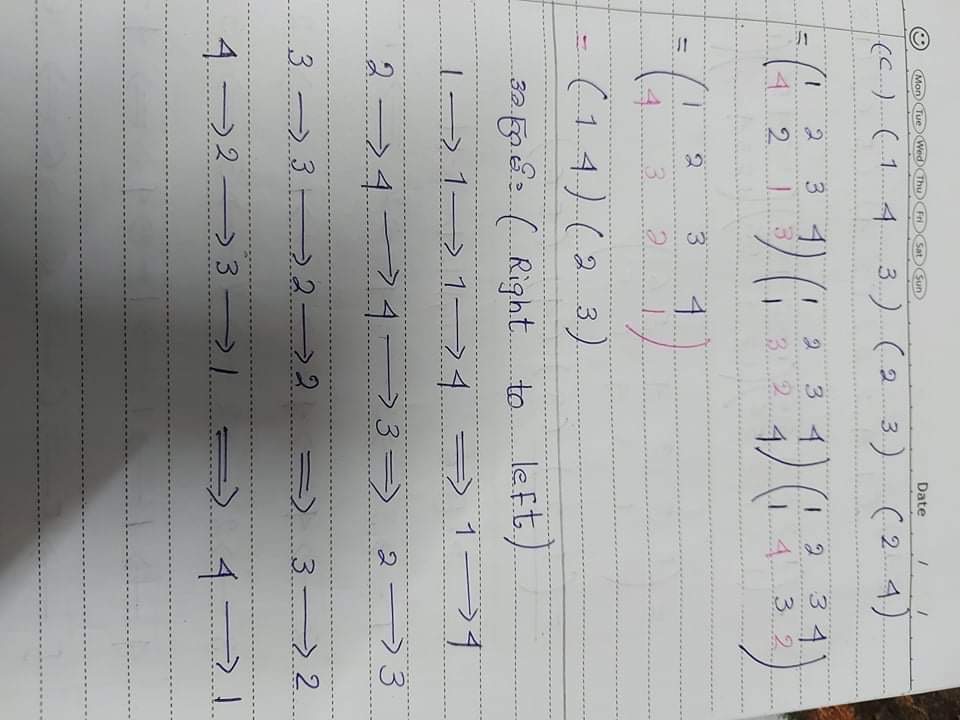 Mon Tue Wed Thu Fri Sat Sun
Date / /
(c) (1 4 3) (2 3) (2 4)
= (1 2 3 4) (1 2 3 4) (1 2 3 4)
(4 2 1 3) (1 3 2 4) (1 4 3 2)
= (1 2 3 4)
(4 3 2 1)
= (1 4) (2 3)
(Right to left)
1 → 1 → 1 → 4 ⇒ 1 → 4
2 → 4 → 4 → 3 ⇒ 2 → 3
3 → 3 → 2 → 2 ⇒ 3 → 2
4 → 2 → 3 → 1 ⇒ 4 → 1